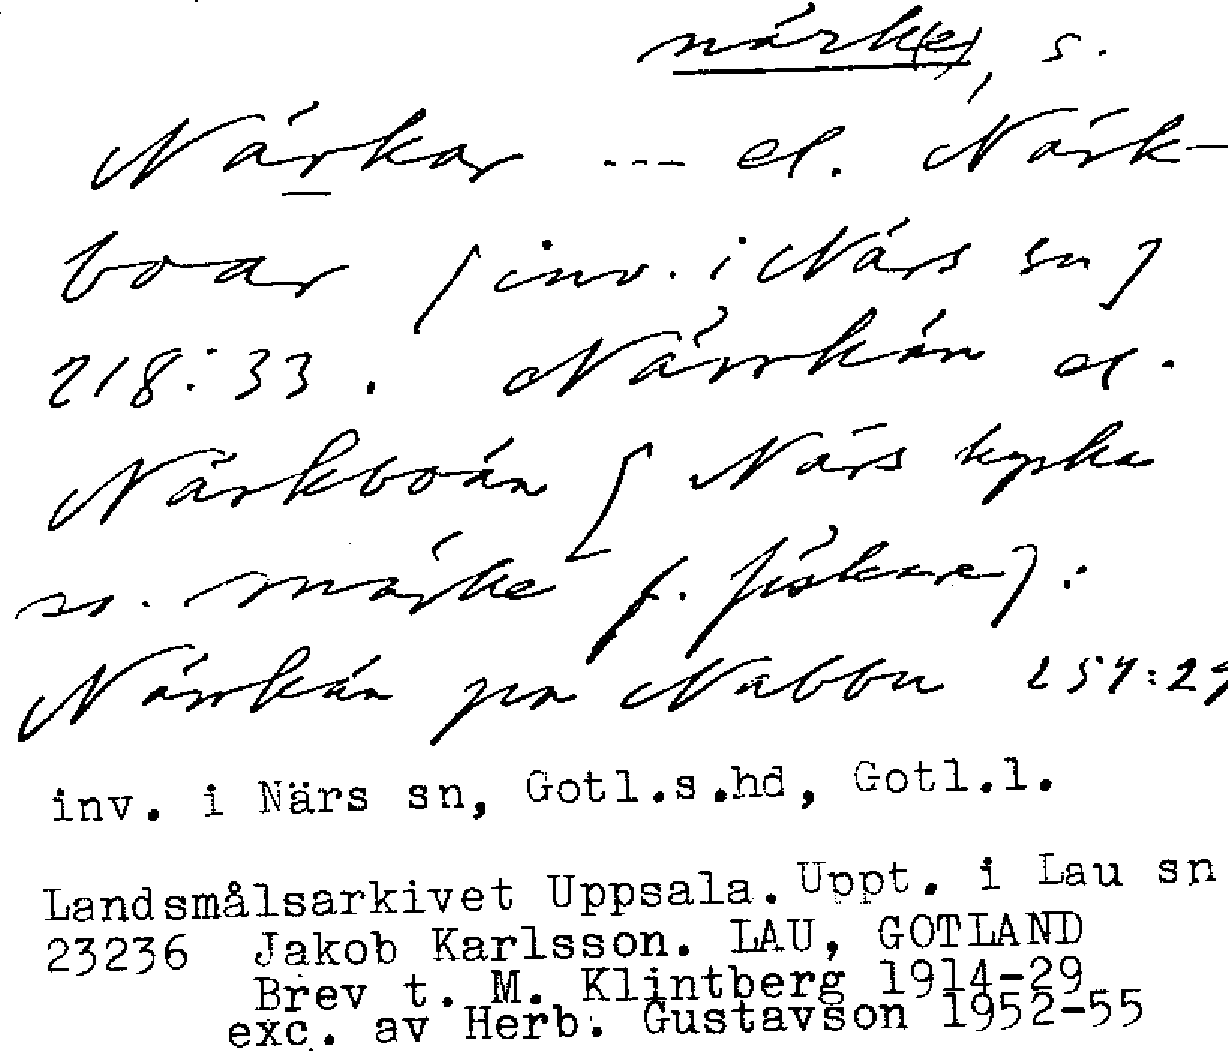 närk(e), s.
Närkar --- el. Närk-
boar [inv. i Närs sn]
218:33. Närrkän el.
Närkboän [Närs kyrka
ss. märke f. fiskare]:
Närrkän pa Nabbu 257:29
inv. i Närs sn, Gotl.s.hd, Gotl.l.
Landsmålsarkivet Uppsala. Uppt. i Lau sn
23236 Jakob Karlsson. LAU, GOTLAND
Brev t. M. Klintberg 1914-29
exc. av Herb. Gustavson 1952-55